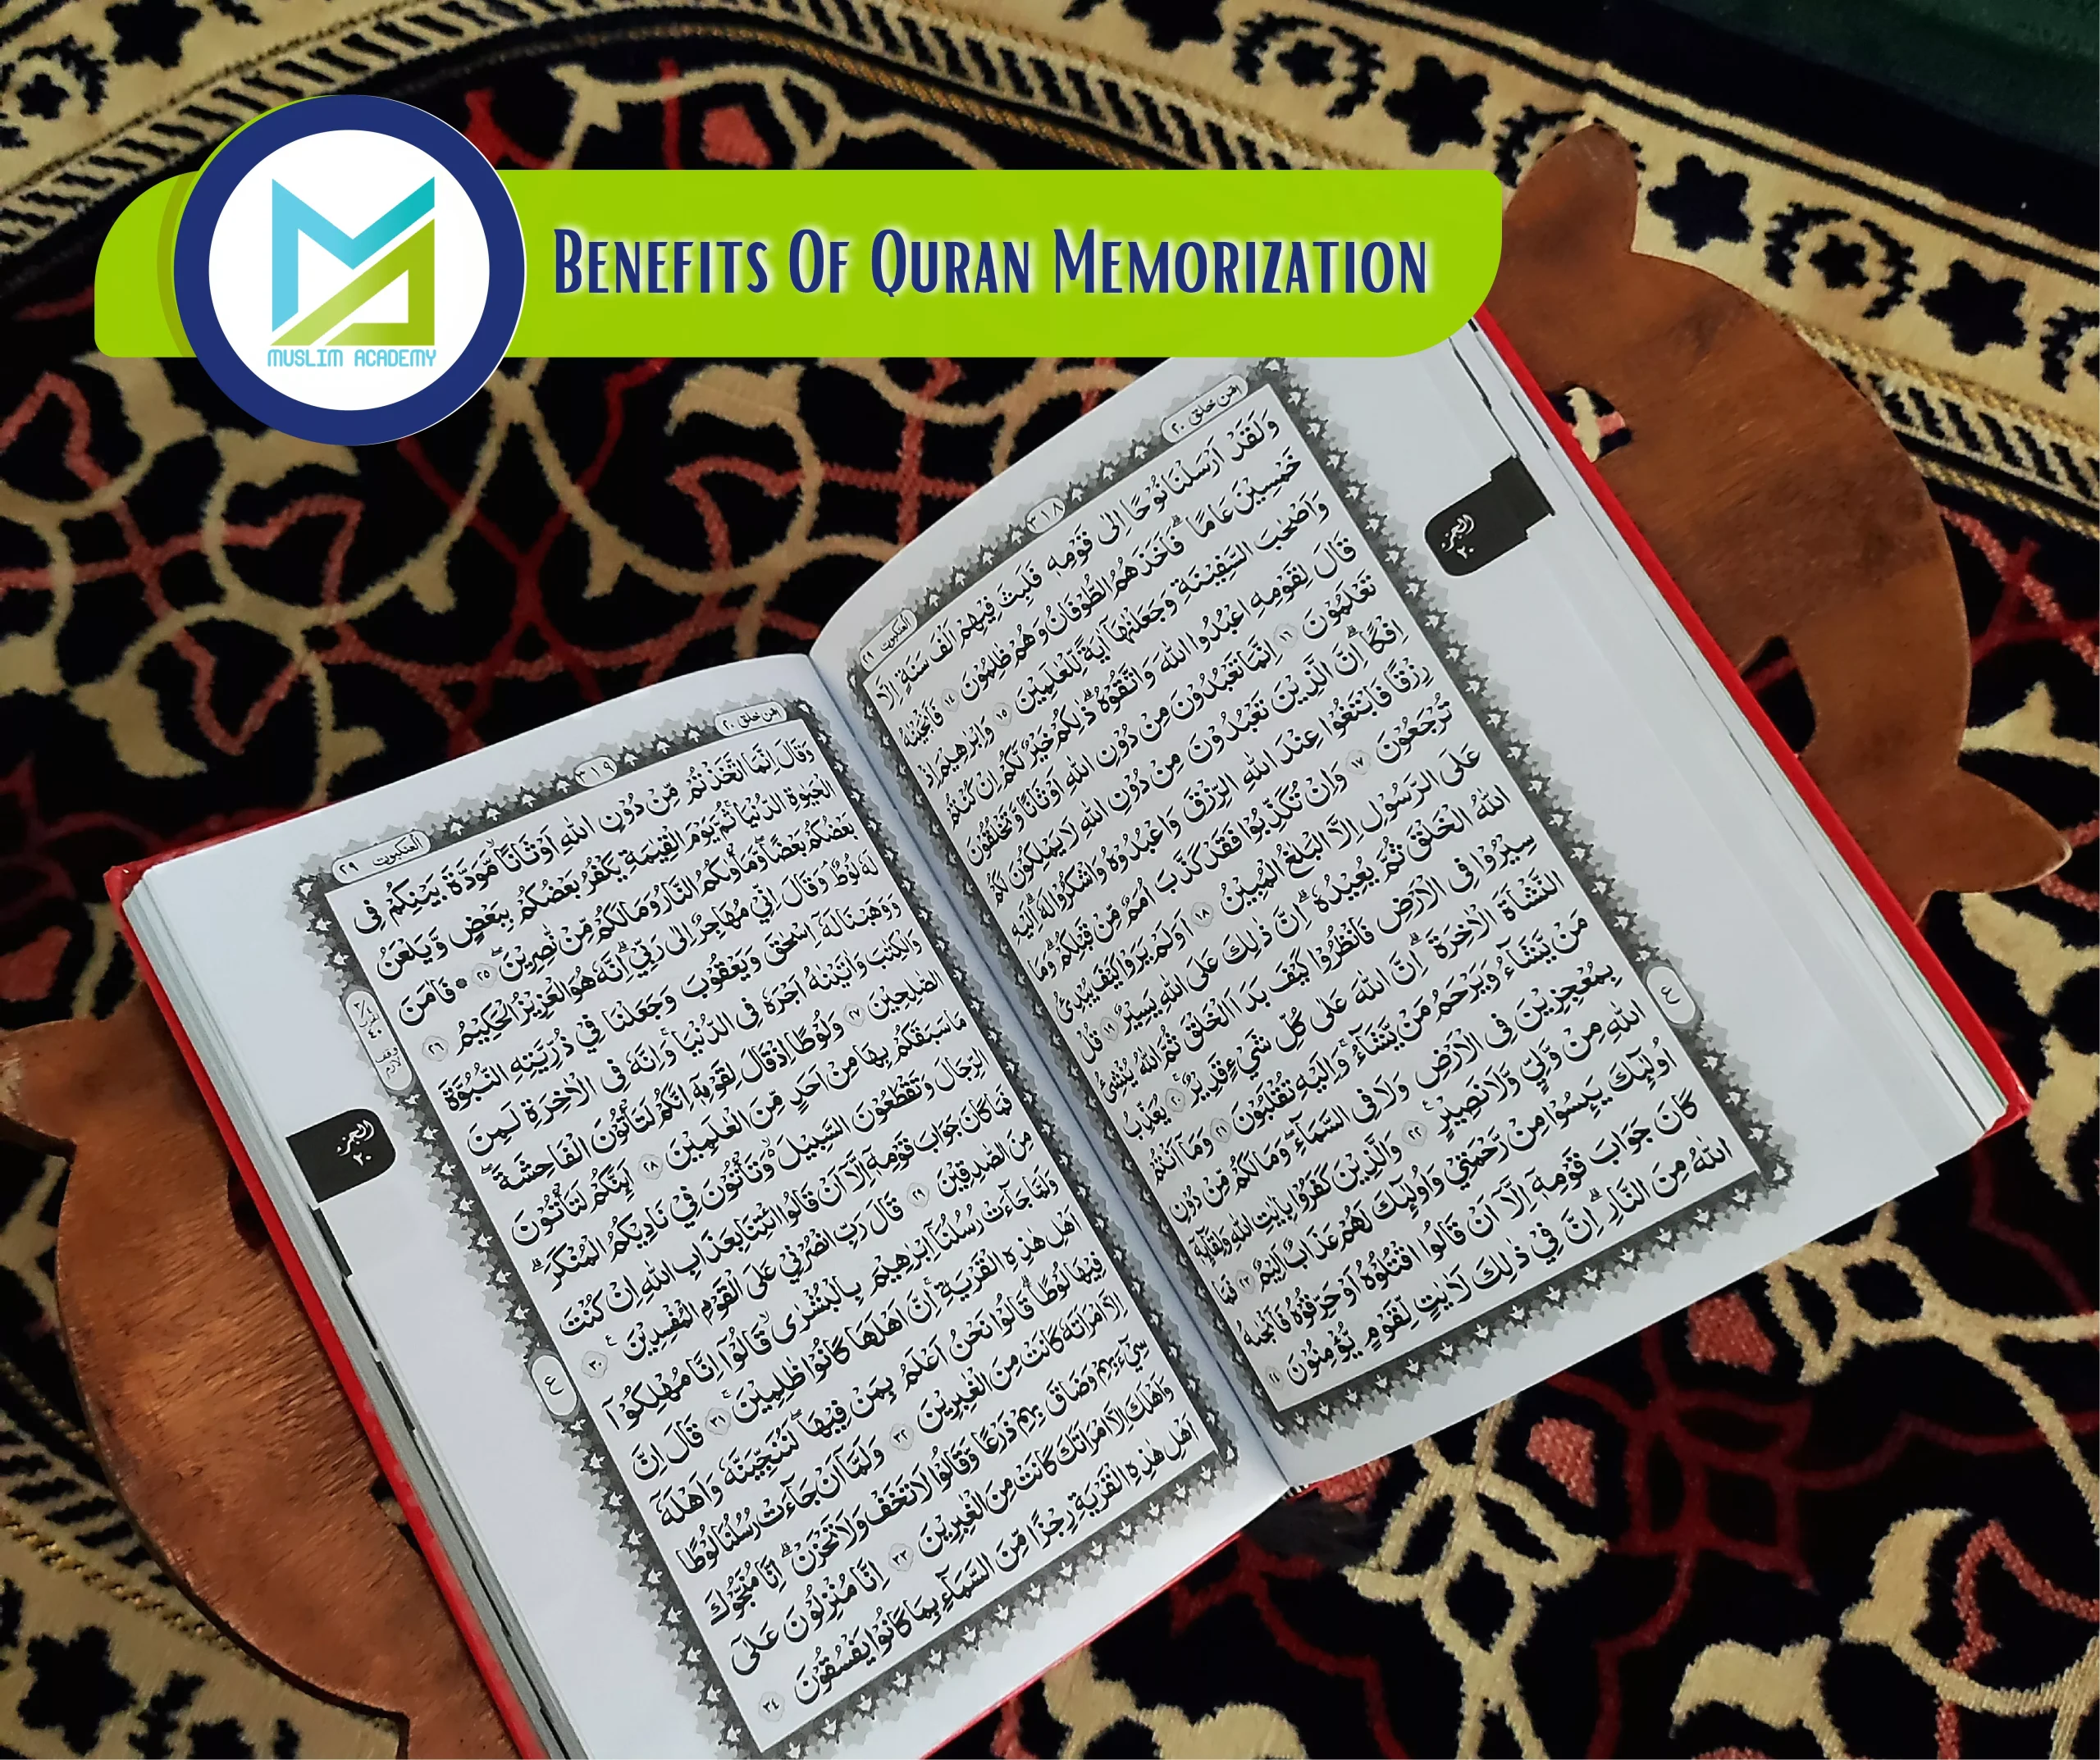 MUSLIM ACADEMY
BENEFITS OF QURAN MEMORIZATION
امن خلق ۲۰
۳۱۸
العنكبوت ۲۹
وَلَقَدْ اَرْسَلْنَا نُوْحًا اِلٰى قَوْمِهٖ فَلَبِثَ فِيْهِمْ اَلْفَ سَنَةٍ اِلَّا
خَمْسِيْنَ عَامًا ۗ فَاَخَذَهُمُ الطُّوْفَانُ وَهُمْ ظٰلِمُوْنَ ۱۴ فَاَنْجَيْنٰهُ
وَاَصْحٰبَ السَّفِيْنَةِ وَجَعَلْنٰهَآ اٰيَةً لِّلْعٰلَمِيْنَ ۱۵ وَاِبْرٰهِيْمَ اِذْ
قَالَ لِقَوْمِهِ اعْبُدُوا اللّٰهَ وَاتَّقُوْهُ ۗ ذٰلِكُمْ خَيْرٌ لَّكُمْ اِنْ كُنْتُمْ
تَعْلَمُوْنَ ۱۶ اِنَّمَا تَعْبُدُوْنَ مِنْ دُوْنِ اللّٰهِ اَوْثَانًا وَّتَخْلُقُوْنَ
اِفْكًا ۗ اِنَّ الَّذِيْنَ تَعْبُدُوْنَ مِنْ دُوْنِ اللّٰهِ لَا يَمْلِكُوْنَ لَكُمْ
رِزْقًا فَابْتَغُوْا عِنْدَ اللّٰهِ الرِّزْقَ وَاعْبُدُوْهُ وَاشْكُرُوْا لَهٗ ۗ اِلَيْهِ
تُرْجَعُوْنَ ۱۷ وَاِنْ تُكَذِّبُوْا فَقَدْ كَذَّبَ اُمَمٌ مِّنْ قَبْلِكُمْ ۗ وَمَا
عَلَى الرَّسُوْلِ اِلَّا الْبَلٰغُ الْمُبِيْنُ ۱۸ اَوَلَمْ يَرَوْا كَيْفَ يُبْدِئُ
اللّٰهُ الْخَلْقَ ثُمَّ يُعِيْدُهٗ ۗ اِنَّ ذٰلِكَ عَلَى اللّٰهِ يَسِيْرٌ ۱۹ قُلْ
سِيْرُوْا فِى الْاَرْضِ فَانْظُرُوْا كَيْفَ بَدَاَ الْخَلْقَ ثُمَّ اللّٰهُ يُنْشِئُ
النَّشْاَةَ الْاٰخِرَةَ ۗ اِنَّ اللّٰهَ عَلٰى كُلِّ شَيْءٍ قَدِيْرٌ ۲۰ يُعَذِّبُ
مَنْ يَّشَآءُ وَيَرْحَمُ مَنْ يَّشَآءُ ۚ وَاِلَيْهِ تُقْلَبُوْنَ ۲۱ وَمَآ اَنْتُمْ
بِمُعْجِزِيْنَ فِى الْاَرْضِ وَلَا فِى السَّمَآءِ ۖ وَمَا لَكُمْ مِّنْ دُوْنِ
اللّٰهِ مِنْ وَّلِيٍّ وَّلَا نَصِيْرٍ ۲۲ وَالَّذِيْنَ كَفَرُوْا بِاٰيٰتِ اللّٰهِ وَلِقَآئِهٖٓ
اُولٰٓئِكَ يَئِسُوْا مِنْ رَّحْمَتِيْ وَاُولٰٓئِكَ لَهُمْ عَذَابٌ اَلِيْمٌ ۲۳ فَمَا
كَانَ جَوَابَ قَوْمِهٖٓ اِلَّآ اَنْ قَالُوا اقْتُلُوْهُ اَوْ حَرِّقُوْهُ فَاَنْجٰىهُ
اللّٰهُ مِنَ النَّارِ ۗ اِنَّ فِيْ ذٰلِكَ لَاٰيٰتٍ لِّقَوْمٍ يُّؤْمِنُوْنَ ۲۴
الجزء
۲۰
ع
امن خلق ۲۰
۳۱۹
العنكبوت ۲۹
وَقَالَ اِنَّمَا اتَّخَذْتُمْ مِّنْ دُوْنِ اللّٰهِ اَوْثَانًا ۙ مَّوَدَّةَ بَيْنِكُمْ فِى
الْحَيٰوةِ الدُّنْيَا ۚ ثُمَّ يَوْمَ الْقِيٰمَةِ يَكْفُرُ بَعْضُكُمْ بِبَعْضٍ وَّيَلْعَنُ
بَعْضُكُمْ بَعْضًا ۖ وَّمَأْوٰىكُمُ النَّارُ وَمَا لَكُمْ مِّنْ نّٰصِرِيْنَ ۲۵ ۞ فَاٰمَنَ
لَهٗ لُوْطٌ ۘ وَقَالَ اِنِّيْ مُهَاجِرٌ اِلٰى رَبِّيْ ۗ اِنَّهٗ هُوَ الْعَزِيْزُ الْحَكِيْمُ ۲۶
وَوَهَبْنَا لَهٗٓ اِسْحٰقَ وَيَعْقُوْبَ وَجَعَلْنَا فِيْ ذُرِّيَّتِهِ النُّبُوَّةَ
وَالْكِتٰبَ وَاٰتَيْنٰهُ اَجْرَهٗ فِى الدُّنْيَا ۚ وَاِنَّهٗ فِى الْاٰخِرَةِ لَمِنَ
الصّٰلِحِيْنَ ۲۷ وَلُوْطًا اِذْ قَالَ لِقَوْمِهٖٓ اِنَّكُمْ لَتَأْتُوْنَ الْفَاحِشَةَ ۖ
مَا سَبَقَكُمْ بِهَا مِنْ اَحَدٍ مِّنَ الْعٰلَمِيْنَ ۲۸ اَئِنَّكُمْ لَتَأْتُوْنَ
الرِّجَالَ وَتَقْطَعُوْنَ السَّبِيْلَ ۙ وَتَأْتُوْنَ فِيْ نَادِيْكُمُ الْمُنْكَرَ ۗ
فَمَا كَانَ جَوَابَ قَوْمِهٖٓ اِلَّآ اَنْ قَالُوا ائْتِنَا بِعَذَابِ اللّٰهِ اِنْ كُنْتَ
مِنَ الصّٰدِقِيْنَ ۲۹ قَالَ رَبِّ انْصُرْنِيْ عَلَى الْقَوْمِ الْمُفْسِدِيْنَ ۳۰
وَلَمَّا جَآءَتْ رُسُلُنَآ اِبْرٰهِيْمَ بِالْبُشْرٰى ۙ قَالُوْٓا اِنَّا مُهْلِكُوْٓا
اَهْلِ هٰذِهِ الْقَرْيَةِ ۚ اِنَّ اَهْلَهَا كَانُوْا ظٰلِمِيْنَ ۳۱ قَالَ اِنَّ
فِيْهَا لُوْطًا ۗ قَالُوْا نَحْنُ اَعْلَمُ بِمَنْ فِيْهَا ۖ لَنُنَجِّيَنَّهٗ وَاَهْلَهٗٓ
اِلَّا امْرَاَتَهٗ كَانَتْ مِنَ الْغٰبِرِيْنَ ۳۲ وَلَمَّآ اَنْ جَآءَتْ رُسُلُنَا لُوْطًا
سِيْٓءَ بِهِمْ وَضَاقَ بِهِمْ ذَرْعًا وَّقَالُوْا لَا تَخَفْ وَلَا تَحْزَنْ ۗ اِنَّا مُنَجُّوْكَ
وَاَهْلَكَ اِلَّا امْرَاَتَكَ كَانَتْ مِنَ الْغٰبِرِيْنَ ۳۳ اِنَّا مُنْزِلُوْنَ عَلٰٓى
اَهْلِ هٰذِهِ الْقَرْيَةِ رِجْزًا مِّنَ السَّمَآءِ بِمَا كَانُوْا يَفْسُقُوْنَ ۳۴
وقف لازم
الجزء
۲۰
ع